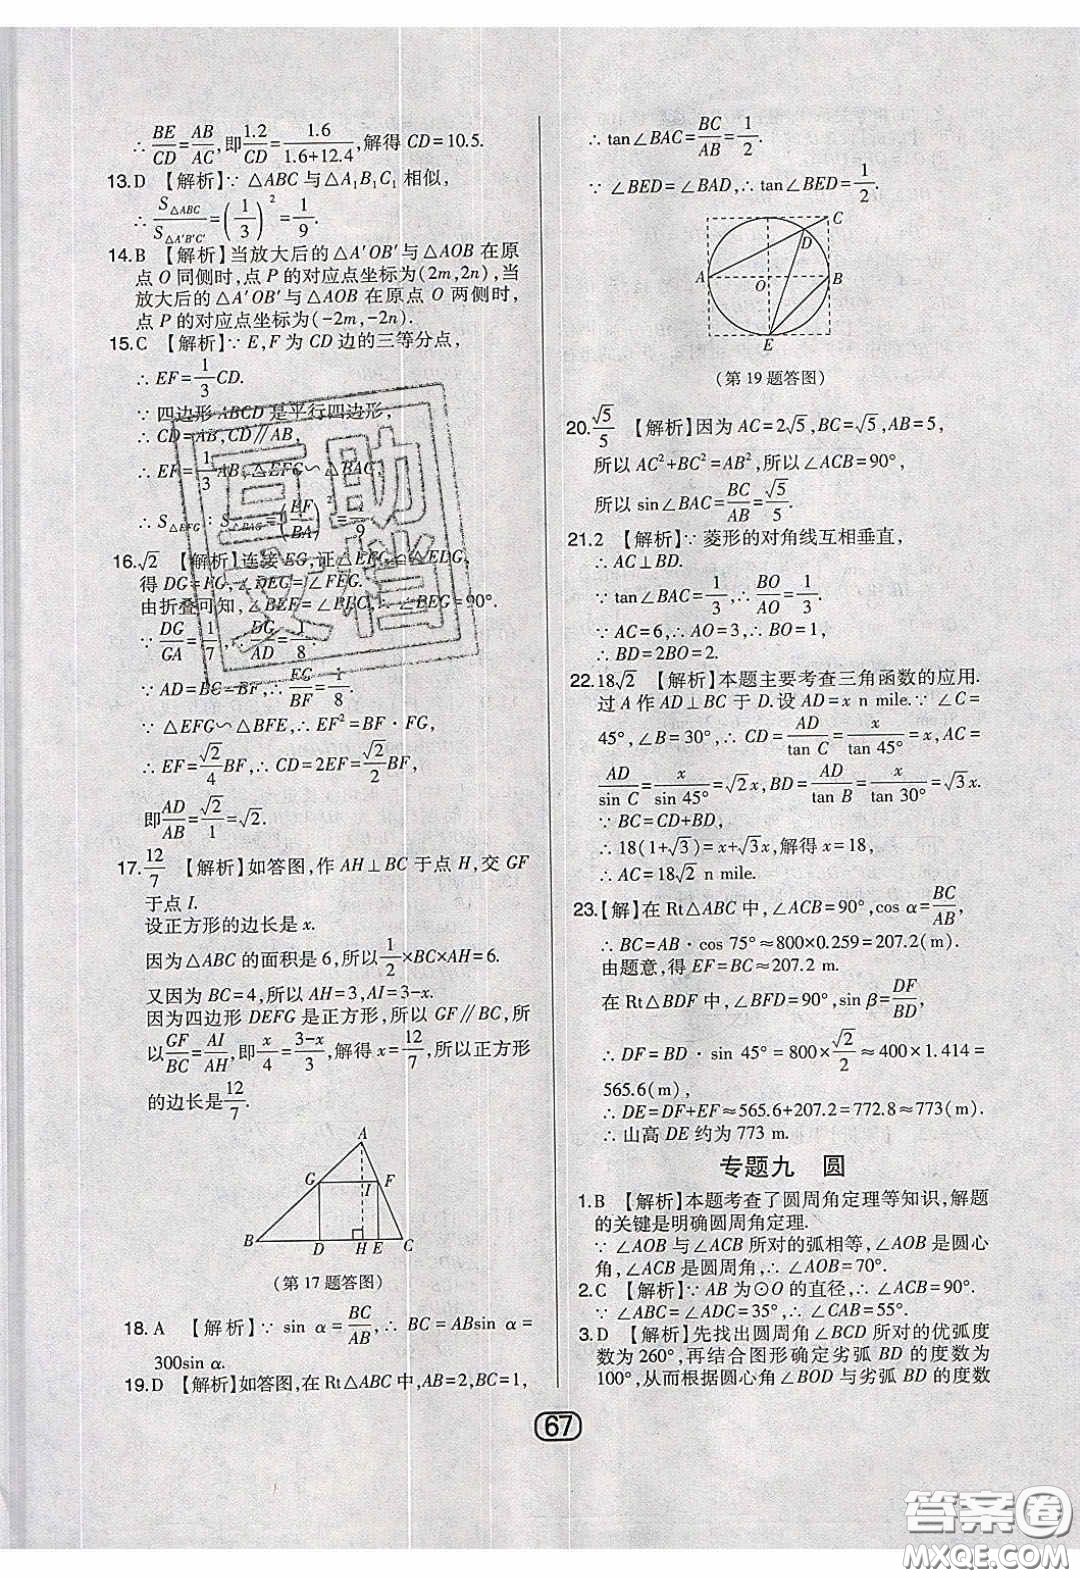 ∴ BE/CD=AB/AC,即1.2/CD=1.6/(1.6+12.4),解得 CD=10.5.
13.D 【解析】∵ △ABC 与△A₁B₁C₁ 相似,
∴ S△ABC/S△A′B′C′=(1/3)²=1/9.
14.B 【解析】当放大后的△A′OB′与△AOB 在原
点 O 同侧时,点 P 的对应点坐标为(2m,2n),当
放大后的△A′OB′与△AOB 在原点 O 两侧时,
点 P 的对应点坐标为(-2m,-2n).
15.C 【解析】∵ E,F 为 CD 边的三等分点,
∴ EF=1/3CD.
∵ 四边形 ABCD 是平行四边形,
∴ CD=AB,CD∥AB,
∴ EF=1/3AB,△EFG∽△BAG,
∴ S△EFG∶S△BAG=(EF/BA)²=1/9
16.√2 【解析】连接 EG,证△EFG≌△EDG,
得 DG=FG,∠DEG=∠FEG.
由折叠可知,∠BEF=∠BEC,∴ ∠BEG=90°.
∵ DG/GA=1/7,∴ DG/AD=1/8.
∵ AD=BC=BF,∴ FG/BF=1/8.
∵ △EFG∽△BFE,∴ EF²=BF·FG,
∴ EF=√2/4BF,∴ CD=2EF=√2/2BF,
即AD/AB=√2/1=√2.
17.12/7 【解析】如答图,作 AH⊥BC 于点 H,交 GF
于点 I.
设正方形的边长是 x.
因为△ABC 的面积是 6,所以1/2×BC×AH=6.
又因为 BC=4,所以 AH=3,AI=3-x.
因为四边形 DEFG 是正方形,所以 GF∥BC,所
以GF/BC=AI/AH,即x/4=(3-x)/3,解得 x=12/7,所以正方形
的边长是12/7.
A
G
I
F
B
D
H
E
C
(第 17 题答图)
18.A 【解析】∵ sin α=BC/AB,∴ BC=ABsin α=
300sin α.
19.D 【解析】如答图,在 Rt△ABC 中,AB=2,BC=1,
∴ tan∠BAC=BC/AB=1/2.
∵ ∠BED=∠BAD,∴ tan∠BED=1/2.
C
D
A
O
B
E
(第 19 题答图)
20.√5/5 【解析】因为 AC=2√5,BC=√5,AB=5,
所以 AC²+BC²=AB²,所以∠ACB=90°,
所以 sin∠BAC=BC/AB=√5/5.
21.2 【解析】∵ 菱形的对角线互相垂直,
∴ AC⊥BD.
∵ tan∠BAC=1/3,∴ BO/AO=1/3.
∵ AC=6,∴ AO=3,∴ BO=1,
∴ BD=2BO=2.
22.18√2 【解析】本题主要考查三角函数的应用.
过 A 作 AD⊥BC 于 D.设 AD=x n mile.∵ ∠C=
45°,∠B=30°,∴ CD=AD/tan C=x/tan 45°=x,AC=
AD/sin C=x/sin 45°=√2x,BD=AD/tan B=x/tan 30°=√3x.
∵ BC=CD+BD,
∴ 18(1+√3)=x+√3x,解得 x=18,
∴ AC=18√2 n mile.
23.【解】在 Rt△ABC 中,∠ACB=90°,cos α=BC/AB,
∴ BC=AB·cos 75°≈800×0.259=207.2(m).
由题意,得 EF=BC≈207.2 m.
在 Rt△BDF 中,∠BFD=90°,sin β=DF/BD,
∴ DF=BD·sin 45°=800×√2/2≈400×1.414=
565.6(m),
∴ DE=DF+EF≈565.6+207.2=772.8≈773(m).
∴ 山高 DE 约为 773 m.
专题九 圆
1.B 【解析】本题考查了圆周角定理等知识,解题
的关键是明确圆周角定理.
∵ ∠AOB 与∠ACB 所对的弧相等,∠AOB 是圆心
角,∠ACB 是圆周角,∴ ∠AOB=70°.
2.C 【解析】∵ AB 为⊙O 的直径,∴ ∠ACB=90°.
∵ ∠ABC=∠ADC=35°,∴ ∠CAB=55°.
3.D 【解析】先找出圆周角∠BCD 所对的优弧度
数为 260°,再结合图形确定劣弧 BD 的度数为
100°,从而根据圆心角∠BOD 与劣弧 BD 的度数
67
互助
文档
答案圈
MXQE.COM